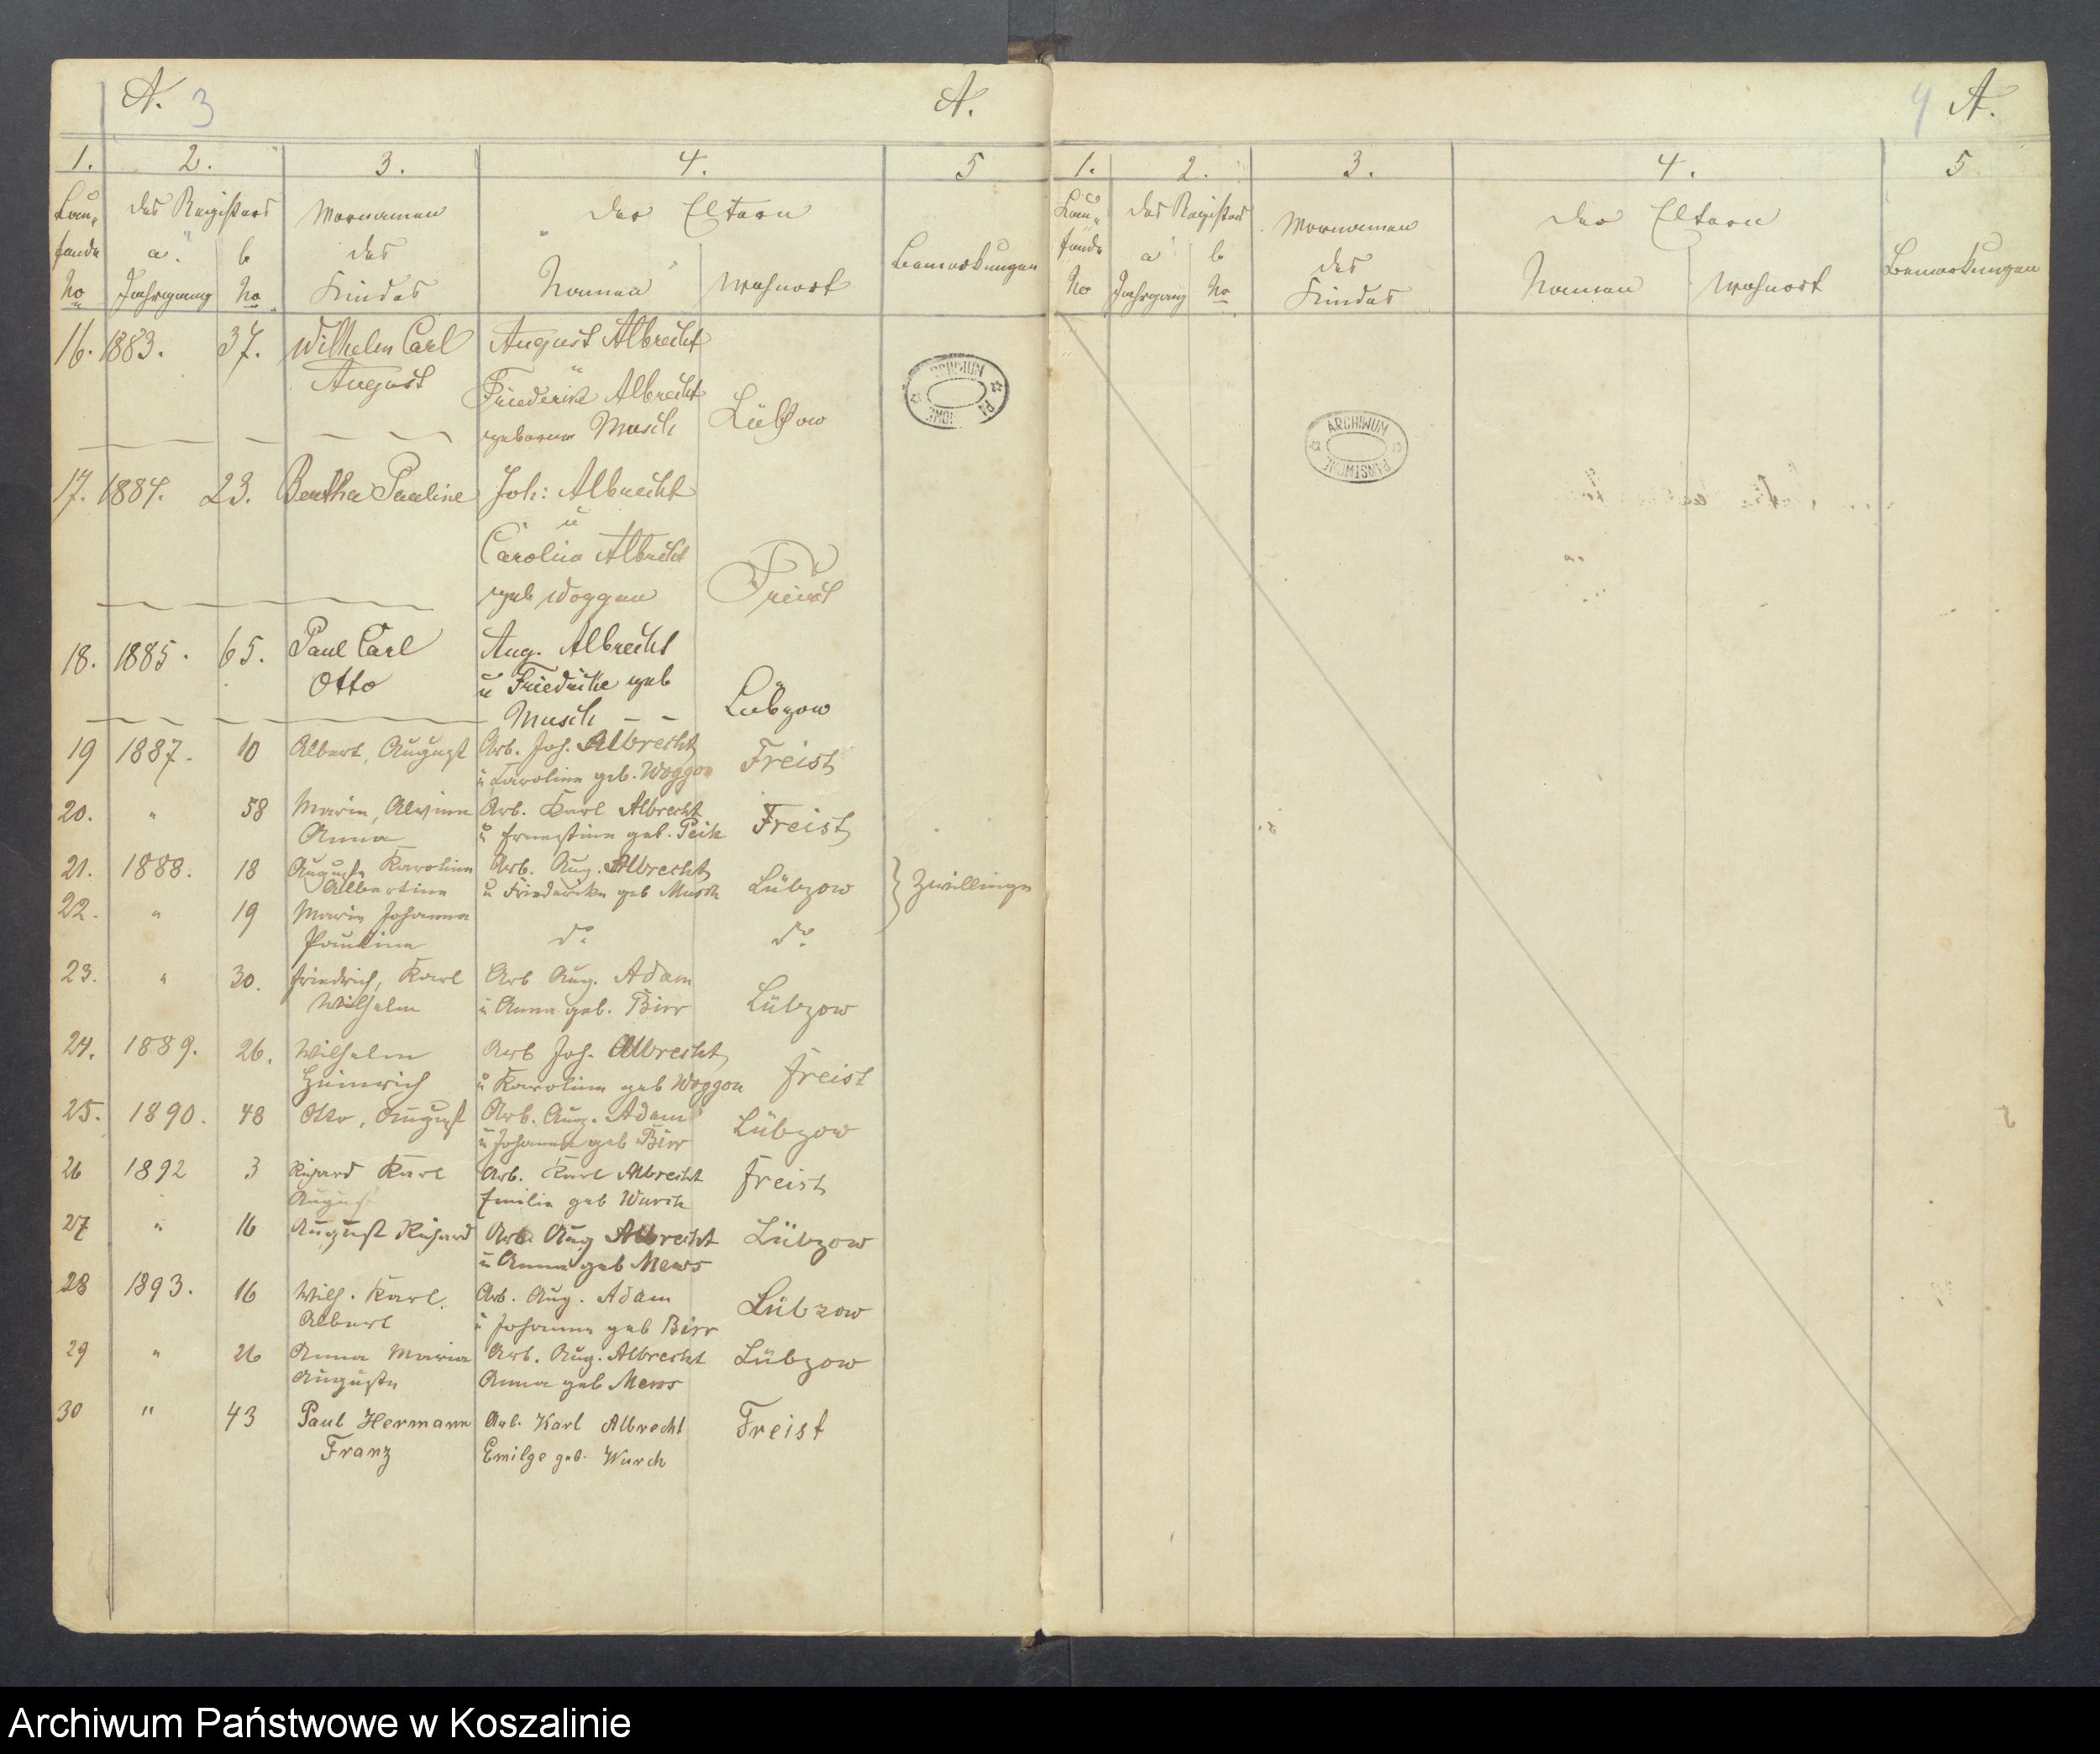 A. 3 A.
1. 2. 3. 4. 5
Lau- des Registers Vornamen der Eltern
fende a. b des Bemerkungen
No Jahrgang No Kindes Namen Wohnort
16. 1883. 37. Wilhelm Carl August Albrecht
August u
Friederike Albrecht
geborene Musch Lübzow
17. 1884. 23. Bertha Pauline Joh: Albrecht
u
Carolina Albrecht
geb Woggon Freist
18. 1885. 65. Paul Carl Aug. Albrecht
Otto u Friedricke geb
Musch Lübzow
19 1887. 10 Albert, August Arb. Joh. Albrecht Freist
u Karoline geb. Woggon
20. " 58 Marie, Alwine Arb. Karl Albrecht Freist
Anna u Ernestine geb.
21. 1888. 18 Auguste Karoline Arb. Aug. Albrecht Lübzow Zwillinge
Albertine u Friedericke geb Musch
22. " 19 Marie Johanna
Pauline do do
23. " 30. Friedrich, Karl Arb Aug. Adam
Wilhelm u Anna geb. Birr Lübzow
24. 1889. 26. Wilhelm Arb Joh. Albrecht Freist
Heinrich u Karoline geb Woggon
25. 1890. 48 Otto, August Arb. Aug. Adam Lübzow
u Johanna geb Birr
26 1892 3 Richard Karl Arb. Karl Albrecht Freist
August Emilie geb Wurch
27 " 16 August Richard Arb. Aug Albrecht Lübzow
u Anna geb Mews
28 1893. 16 Wilh. Karl. Arb. Aug. Adam Lübzow
Albert u Johanna geb Birr
29 " 26 Anna Maria Arb. Aug. Albrecht Lübzow
Auguste Anna geb Mews
30 " 43 Paul Hermann Arb. Karl Albrecht Freist
Franz Emilge geb. Wurch
4 A.
1. 2. 3. 4. 5
Lau- des Registers Vornamen der Eltern
fende a b des Bemerkungen
No Jahrgang No Kindes Namen Wohnort
ARCHIWUM
Archiwum Państwowe w Koszalinie